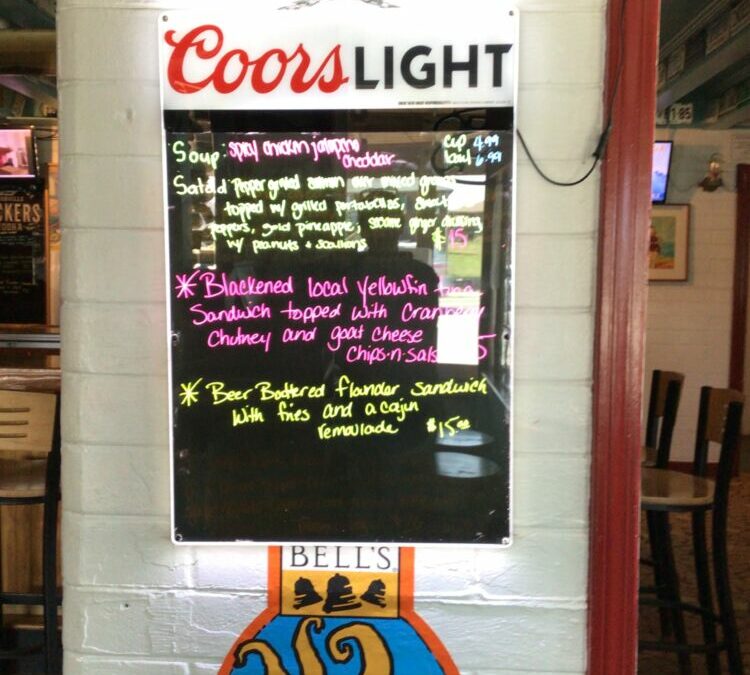 Coors LIGHT
Soup: Spicy chicken jalapeno cup 4.99
cheddar bowl 6.99
Salad Pepper grilled salmon over mixed greens
topped w/ grilled portabellas, sweet
peppers, gold pineapple, sesame ginger dressing
w/ peanuts + scallions $15
* Blackened local yellowfin tuna
Sandwich topped with Cranberry
Chutney and goat cheese
Chips-n-Salsa 5
* Beer Battered flounder sandwich
With fries and a cajun
remoulade $15.00
BELL'S
KERS
185